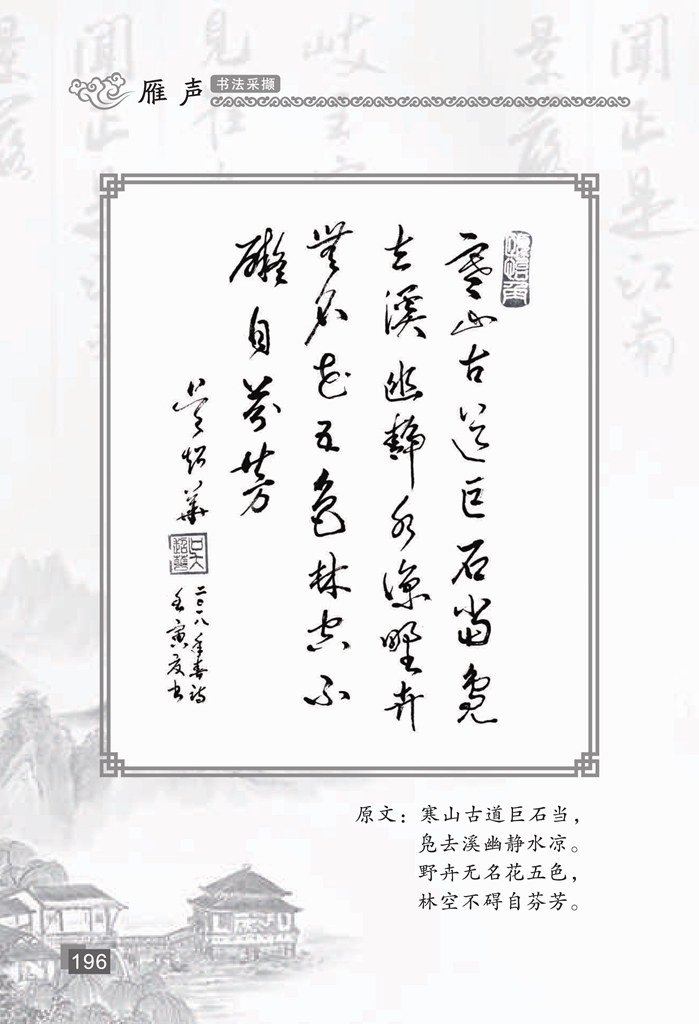 雁声 书法采撷
寒山古道巨石当凫
去溪幽静水凉野卉
无名花五色林空不
碍自芬芳
吴超华
二〇一八年春诗
壬寅夏书
原文：寒山古道巨石当，
凫去溪幽静水凉。
野卉无名花五色，
林空不碍自芬芳。
196